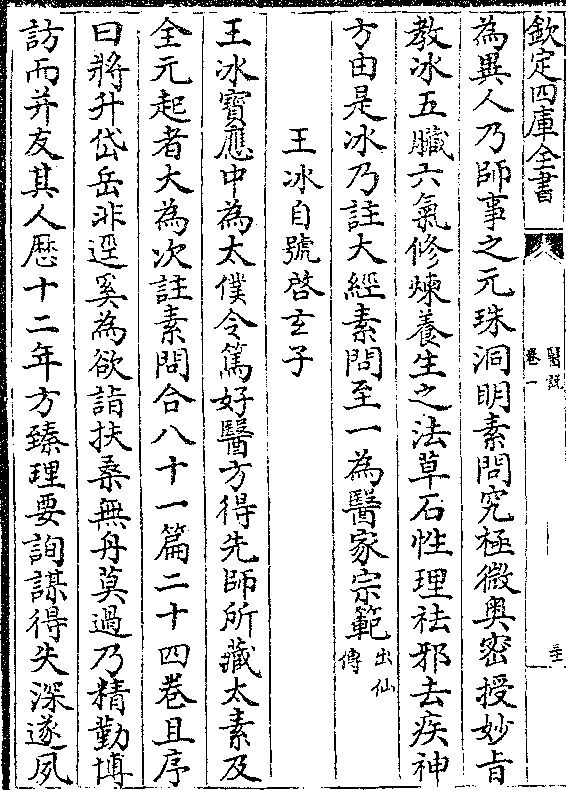 欽定四庫全書
醫說
卷一
為異人乃師事之元珠洞明素問究極微奧密授妙旨
教冰五臟六氣修煉養生之法草石性理祛邪去疾神
方由是冰乃註大經素問至一為醫家宗範出仙傳
王冰自號啓玄子
王冰寶應中為太僕令篤好醫方得先師所藏太素及
全元起者大為次註素問合八十一篇二十四卷且序
曰將升岱岳非逕奚為欲詣扶桑無舟莫過乃精勤博
訪而并友其人厯十二年方臻理要詢謀得失深遂夙